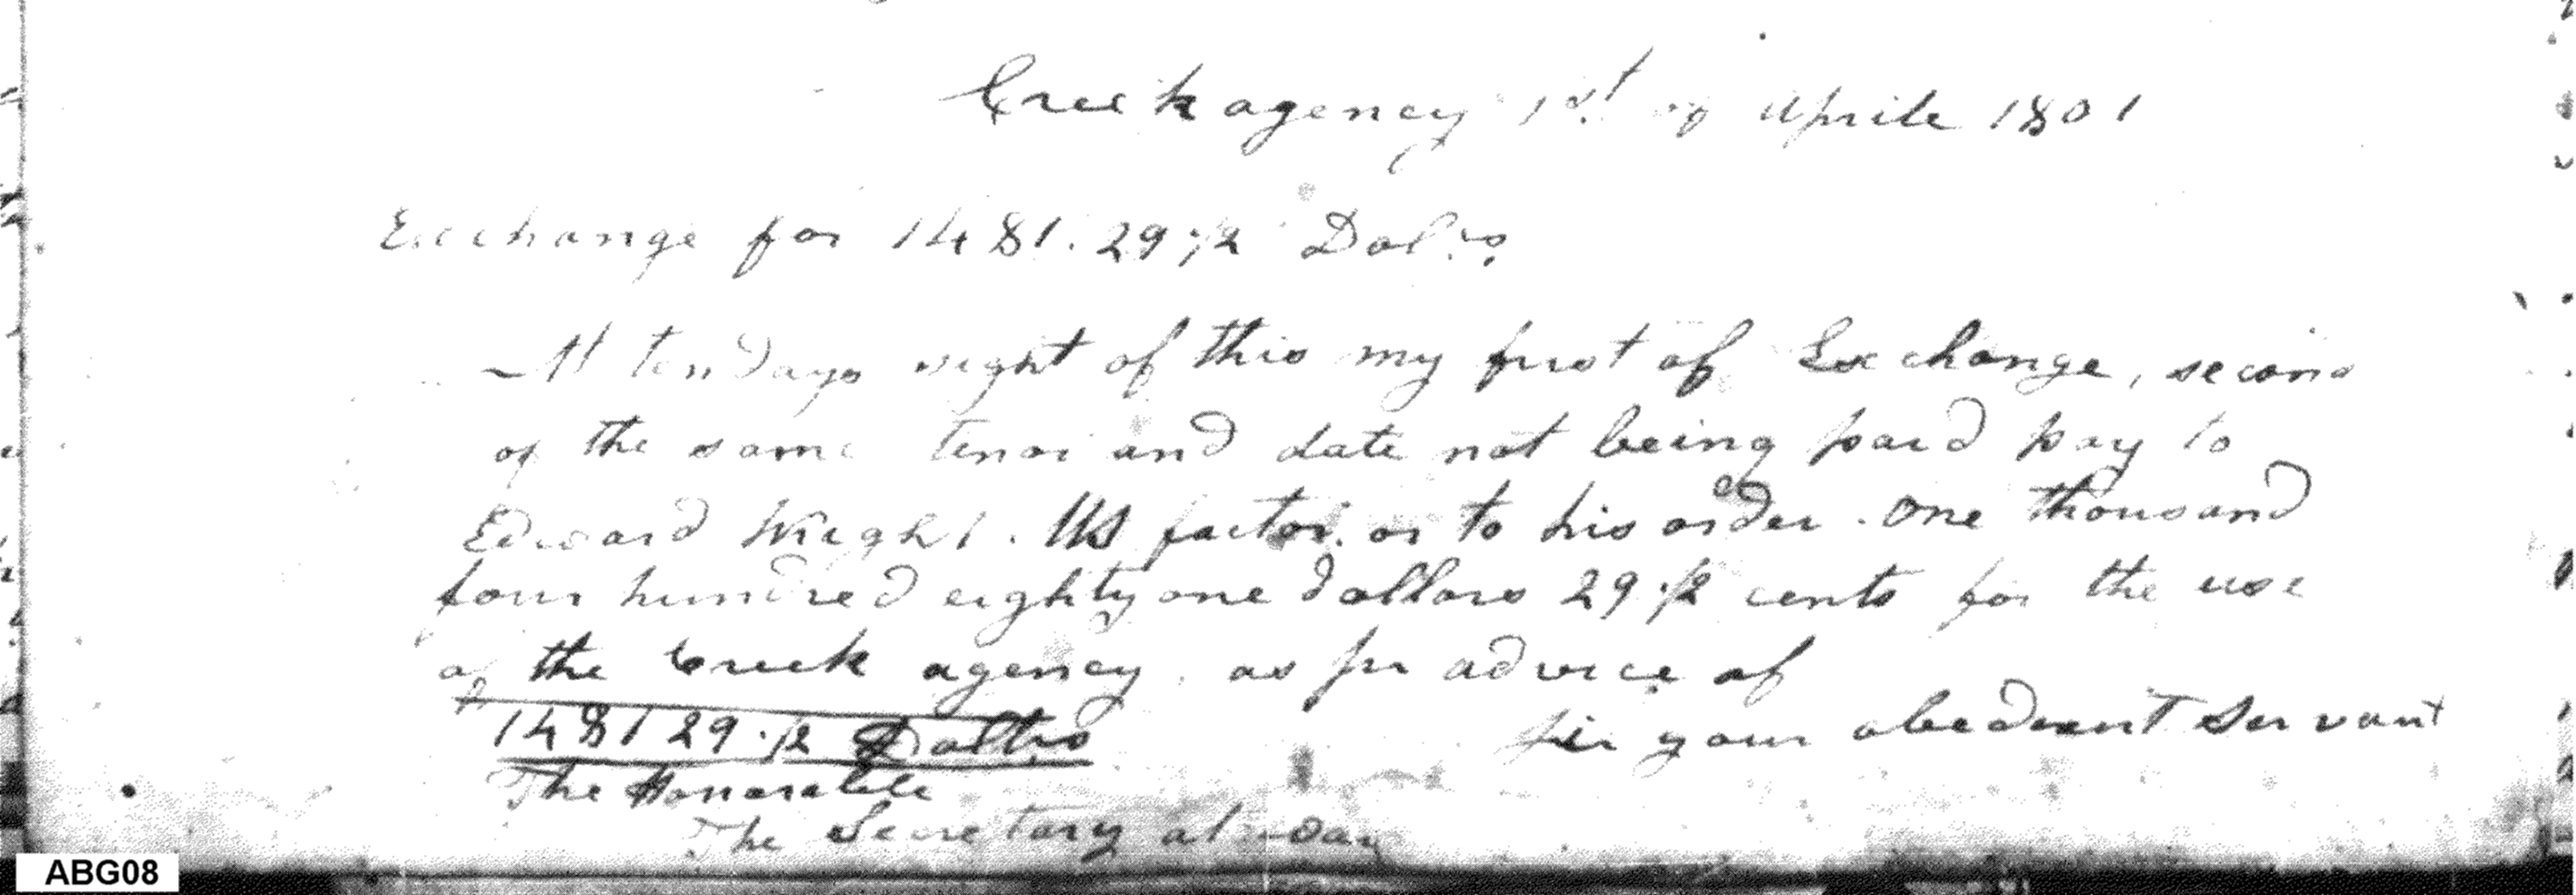 Creek agency 1st. of Aprile 1801
Exchange for 1481.29 ½ Dolrs.
At ten days sight of this my first of Exchange, second
of the same tenor and date not being paid pay to
Edward Wright. US factor. or to his order. One thousand
four hundred eighty one dollars 29 ½ cents for the use
of the Creek agency. as per advice of
Sir your obedient Servant
1481 29 ½ Dollrs
The Honorable
The Secretary at war
ABG08